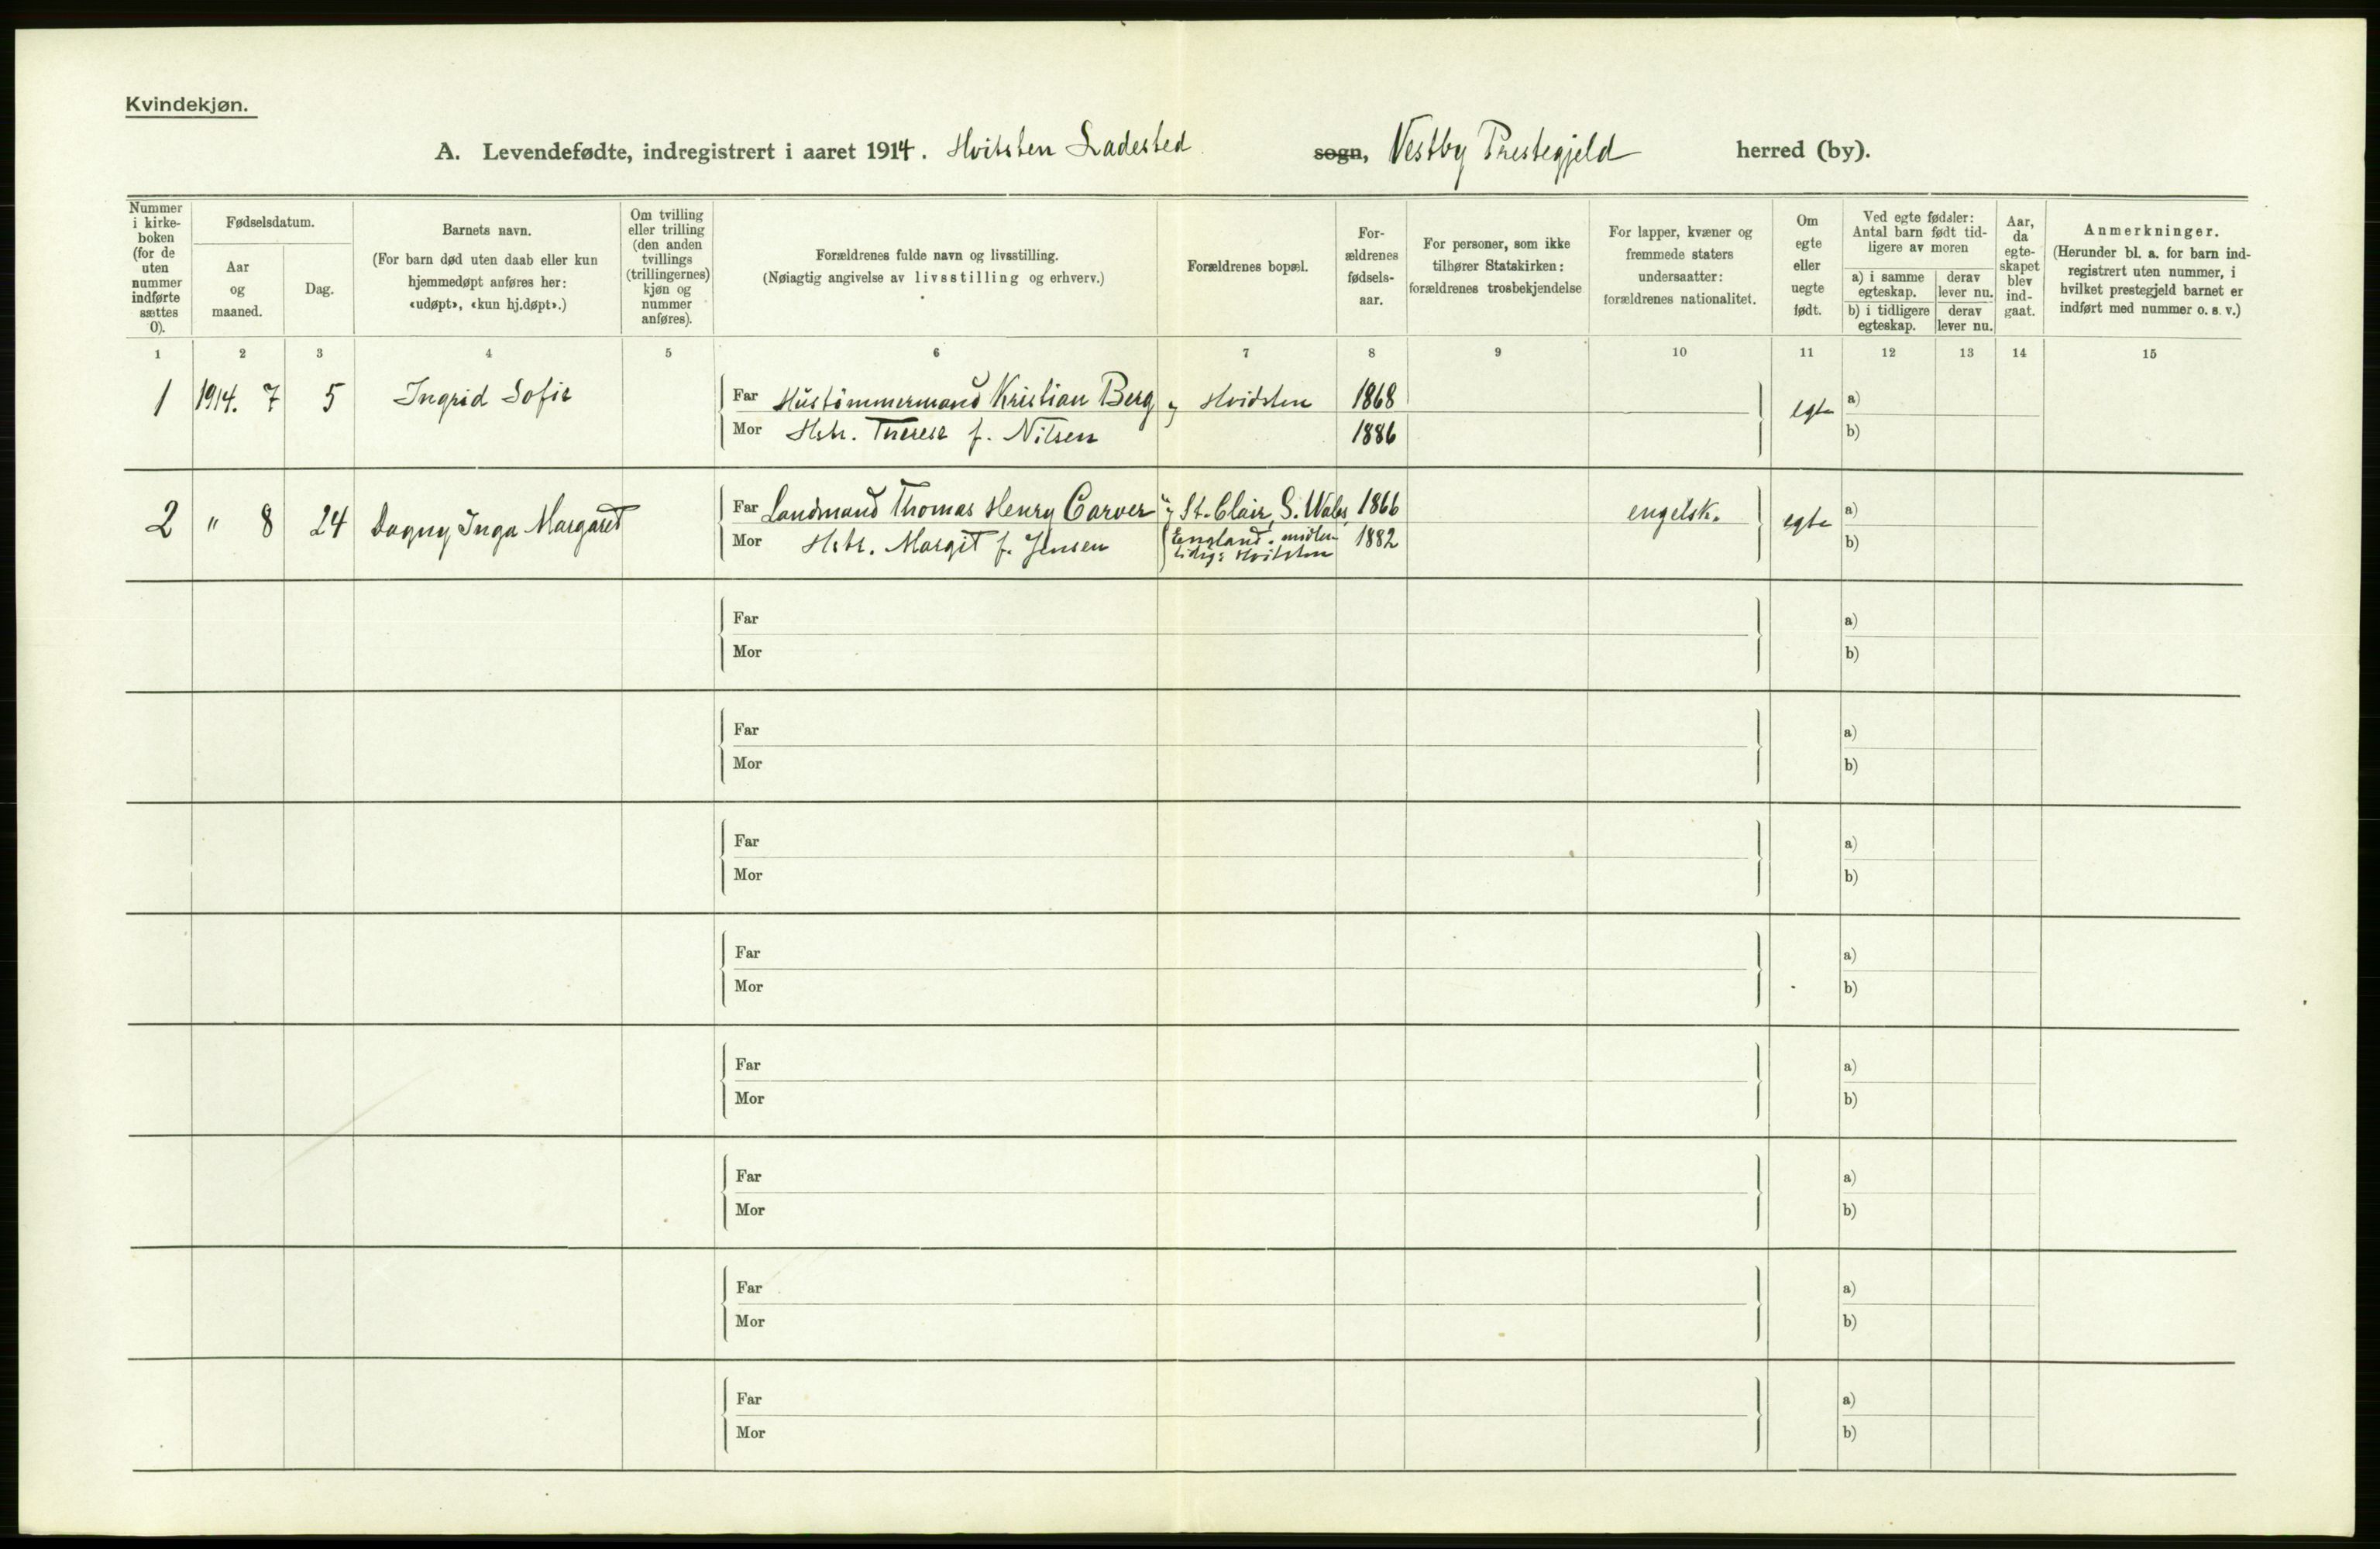 Kvindekjøn.
A. Levendefødte, indregistrert i aaret 1914. Hvitsten Ladested sogn, Vestby Prestegjeld herred (by).
Nummer i kirke-boken (for de uten nummer indførte sættes 0).
Fødselsdatum.
Aar og maaned.
Dag.
Barnets navn.
(For barn død uten daab eller kun hjemmedøpt anføres her: «udøpt», «kun hj.døpt».)
Om tvilling eller trilling (den anden tvillings (trillingernes) kjøn og nummer anføres).
Forældrenes fulde navn og livsstilling.
(Nøiagtig angivelse av livsstilling og erhverv.)
Forældrenes bopæl.
For-ældrenes fødsels-aar.
For personer, som ikke tilhører Statskirken: forældrenes trosbekjendelse
For lapper, kvæner og fremmede staters undersaatter: forældrenes nationalitet.
Om egte eller uegte født.
Ved egte fødsler: Antal barn født tid-ligere av moren
a) i samme egteskap.
derav lever nu.
b) i tidligere egteskap.
derav lever nu.
Aar, da egte-skapet blev ind-gaat.
Anmerkninger.
(Herunder bl. a. for barn ind-registrert uten nummer, i hvilket prestegjeld barnet er indført med nummer o. s. v.)
1 2 3 4 5 6 7 8 9 10 11 12 13 14 15
1 1914. 7 5 Ingrid Sofie Far Hustømmermand Kristian Berg og Hvidsten 1868 egte a)
Mor Hstr. Therese f. Nilsen 1886 b)
2 " 8 24 Dagny Inga Margaret Far Landmand Thomas Henry Carver og St. Clair, S. Wales 1866 engelsk. egte a)
Mor Hstr. Margit f. Jensen England. midler- 1882 b)
tidig: Hvitsten
Far a)
Mor b)
Far a)
Mor b)
Far a)
Mor b)
Far a)
Mor b)
Far a)
Mor b)
Far a)
Mor b)
Far a)
Mor b)
Far a)
Mor b)